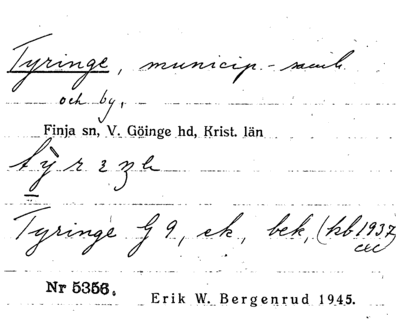 Tyringe, municip.-samh.
och by,
Finja sn, V. Göinge hd, Krist. län
Tyringe G 9, ek, bek, (kb 1937
Nr 5356.
Erik W. Bergenrud 1945.